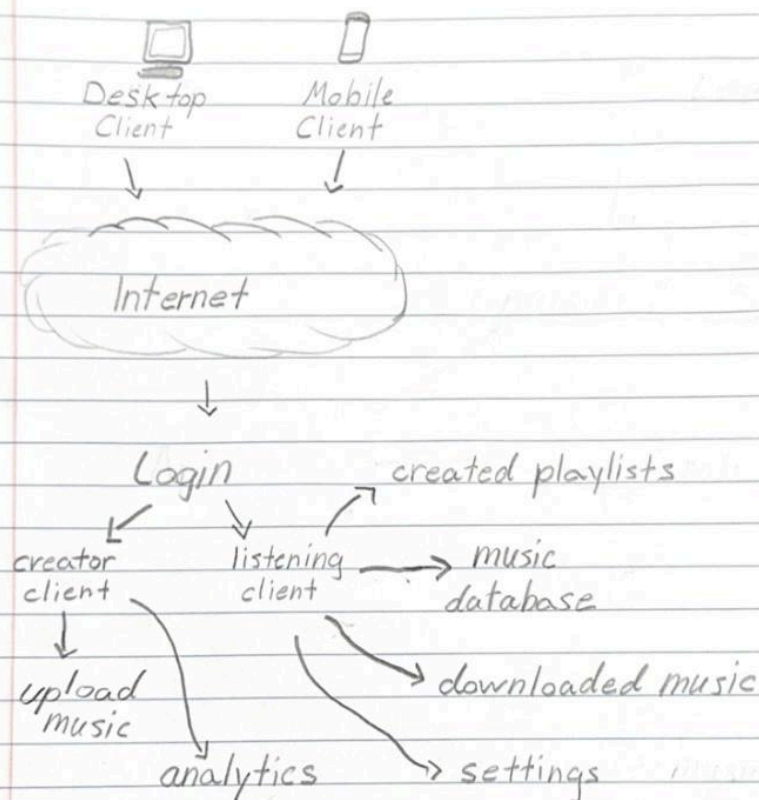 Desktop
Client
Mobile
Client
Internet
Login
created playlists
creator
client
listening
client
music
database
upload
music
downloaded music
analytics
settings